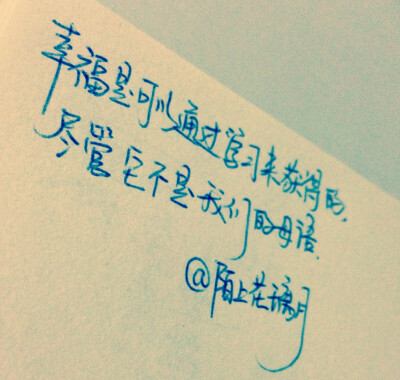 幸福是可以通过学习来获得的,
尽管它不是我们的母语.
@陌上花满月